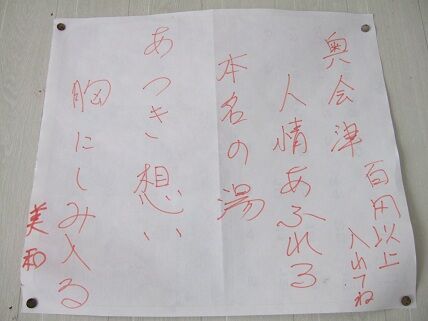 奥会津
百円以上
入れてね
人情あふれる
本名の湯
あつき想い
胸にしみ入る
美和